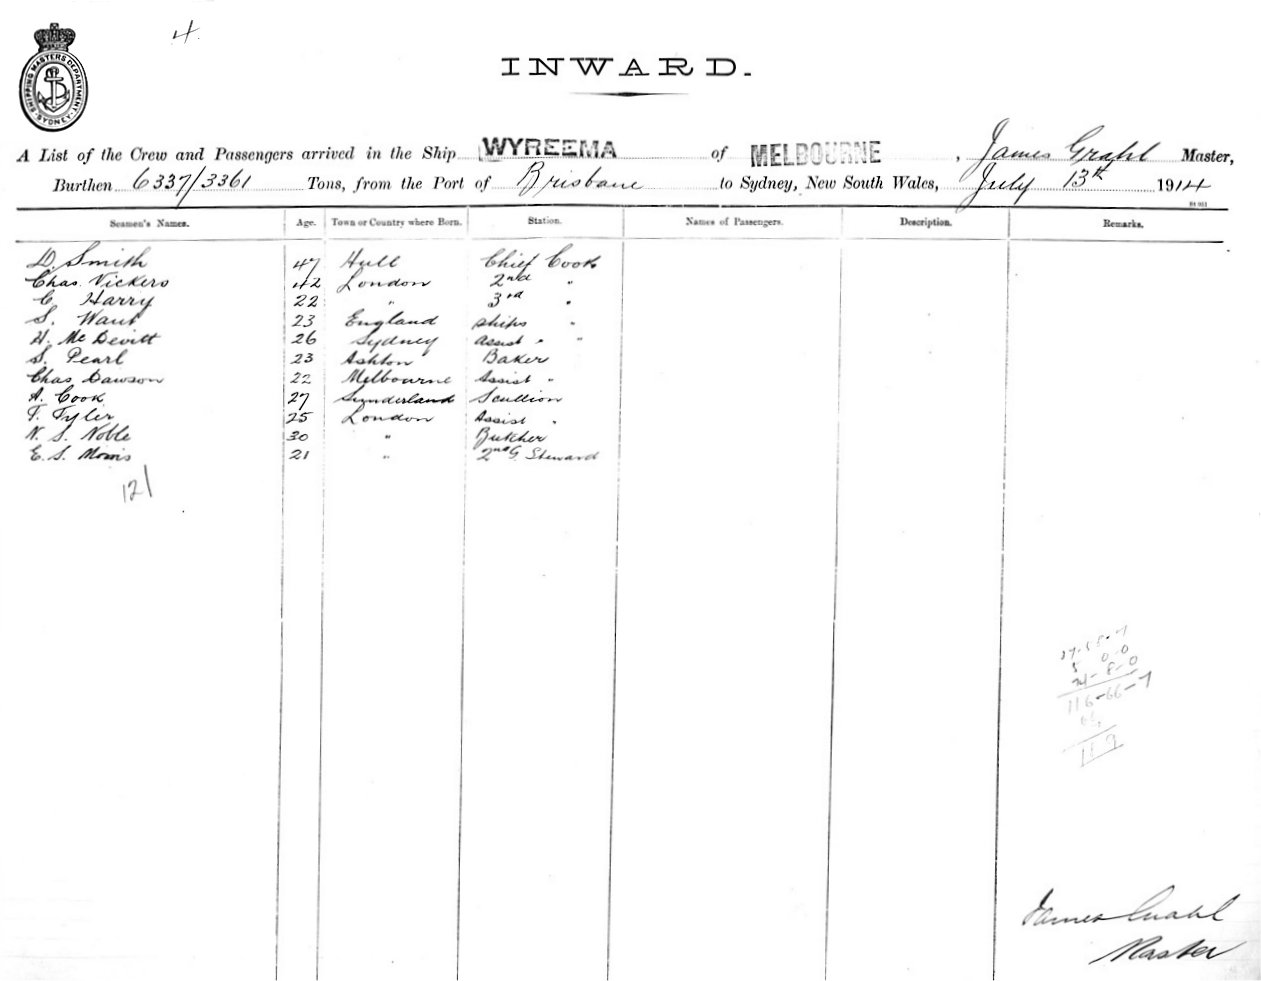 4.
SHIPPING MASTERS DEPARTMENT SYDNEY
INWARD.
A List of the Crew and Passengers arrived in the Ship WYREEMA of MELBOURNE, James Grahl Master,
Burthen 6337/3361 Tons, from the Port of Brisbane to Sydney, New South Wales, July 13th 1914
Seamen's Names. Age. Town or Country where Born. Station. Names of Passengers. Description. Remarks.
D. Smith 47 Hull Chief Cook
Chas. Vickers 42 London 2nd "
C. Harry 22 " 3rd "
S. Want 23 England Ships "
H. McDevitt 26 Sydney Assist " "
S. Pearl 23 Ashton Baker
Chas. Dawson 22 Melbourne Assist "
A. Cook 27 Sunderland Scullion
T. Tyler 25 London Assist "
N. S. Noble 30 " Butcher
E. S. Morris 21 " 2nd G. Steward
121
5 0-0
74-8-0
116-66-7
119
James Grahl
Master